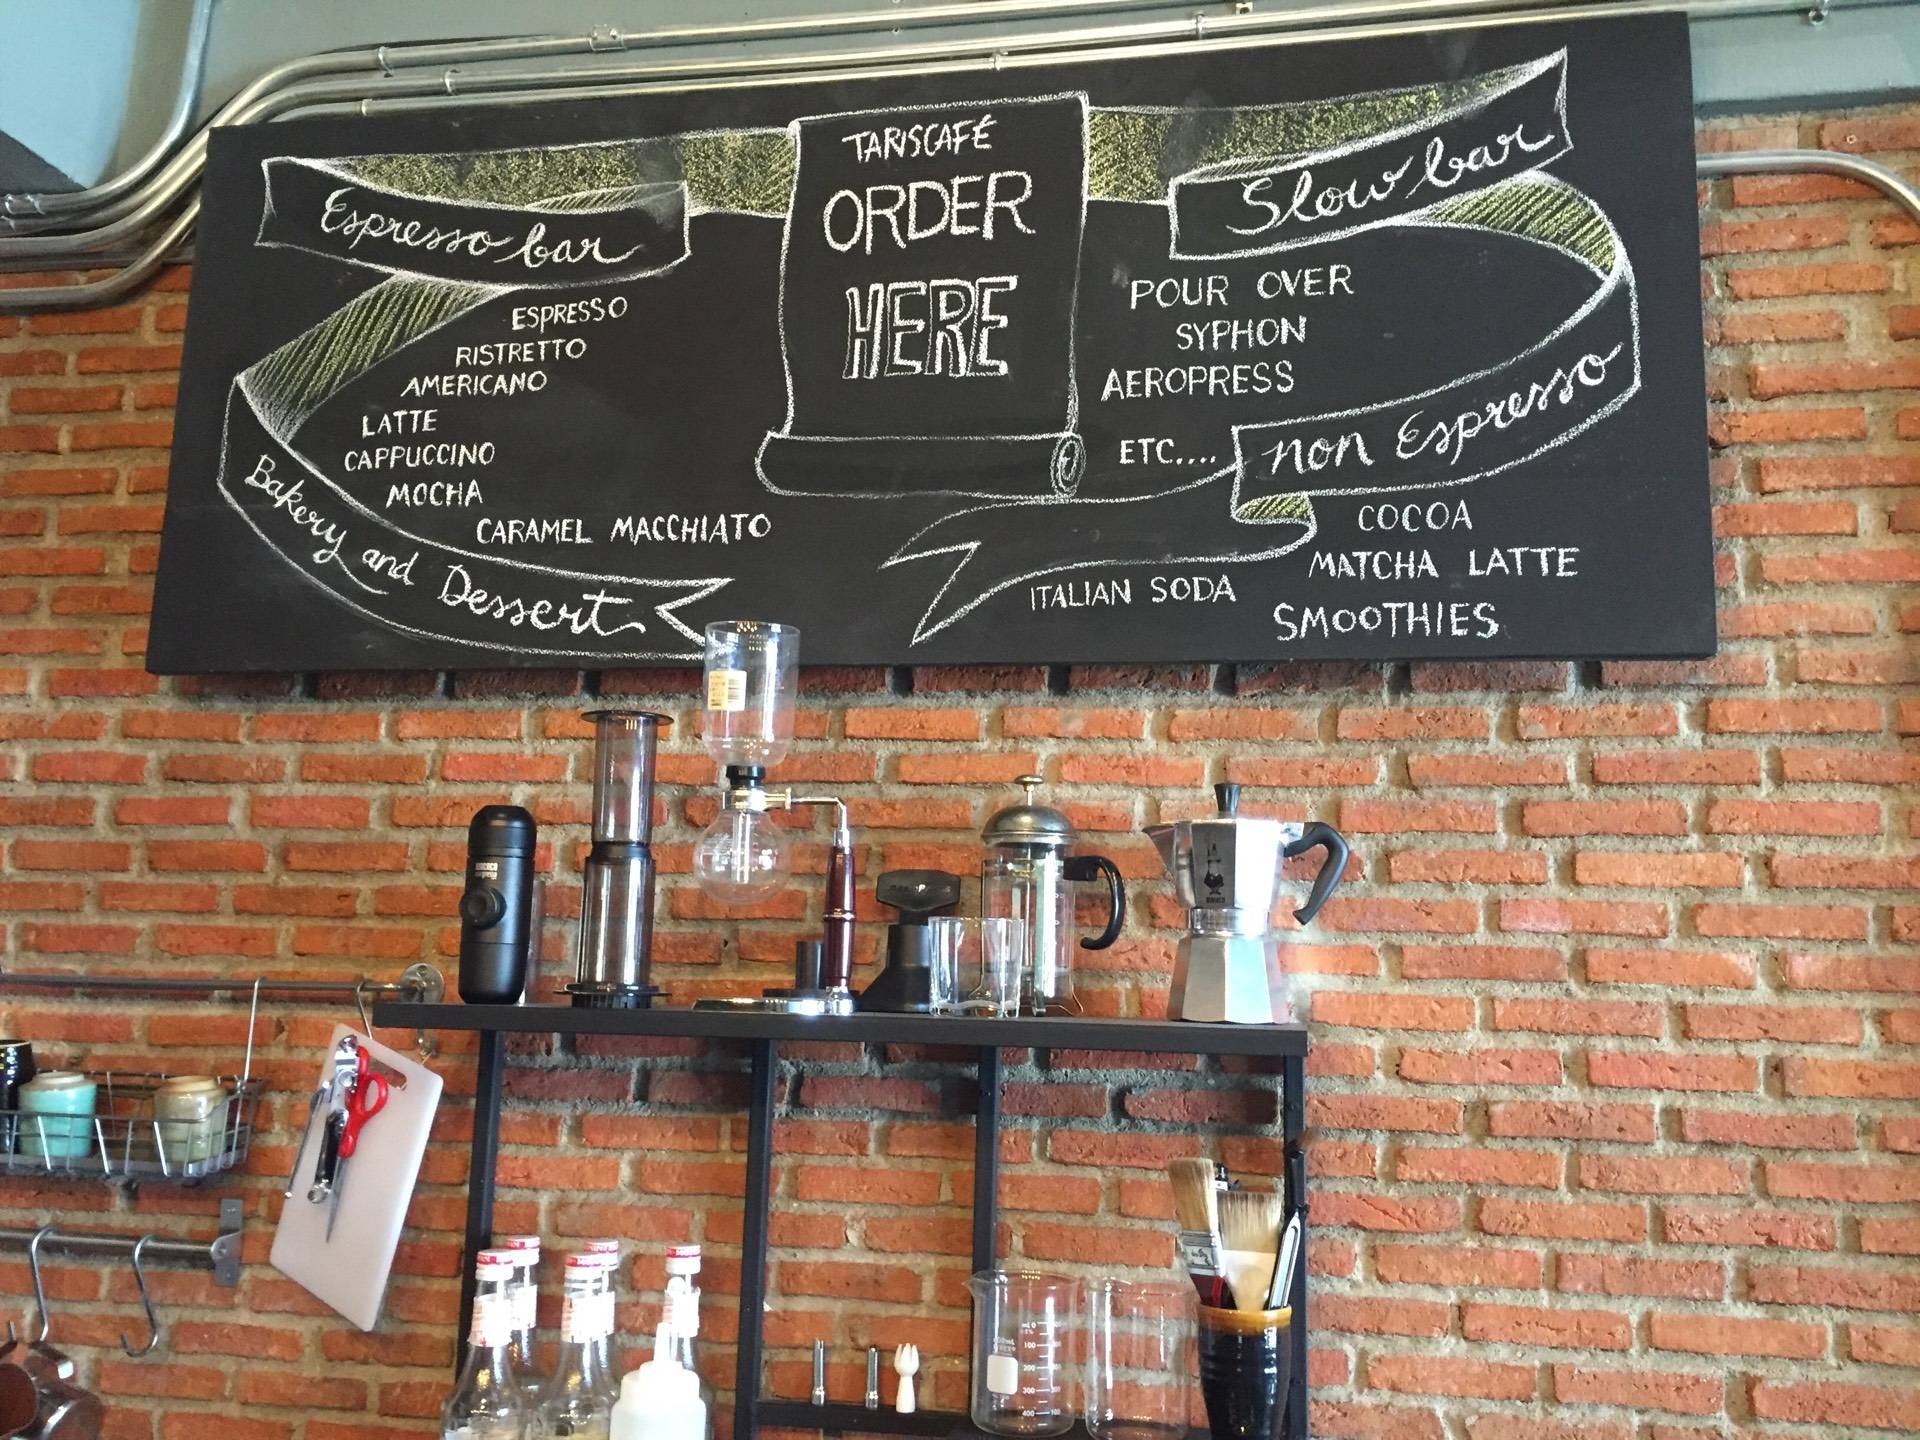 TARISCAFÉ
ORDER
HERE
Espresso bar
ESPRESSO
RISTRETTO
AMERICANO
LATTE
CAPPUCCINO
MOCHA
CARAMEL MACCHIATO
Bakery and Dessert
Slow bar
POUR OVER
SYPHON
AEROPRESS
ETC....
non Espresso
COCOA
MATCHA LATTE
ITALIAN SODA
SMOOTHIES
100
200
300
400